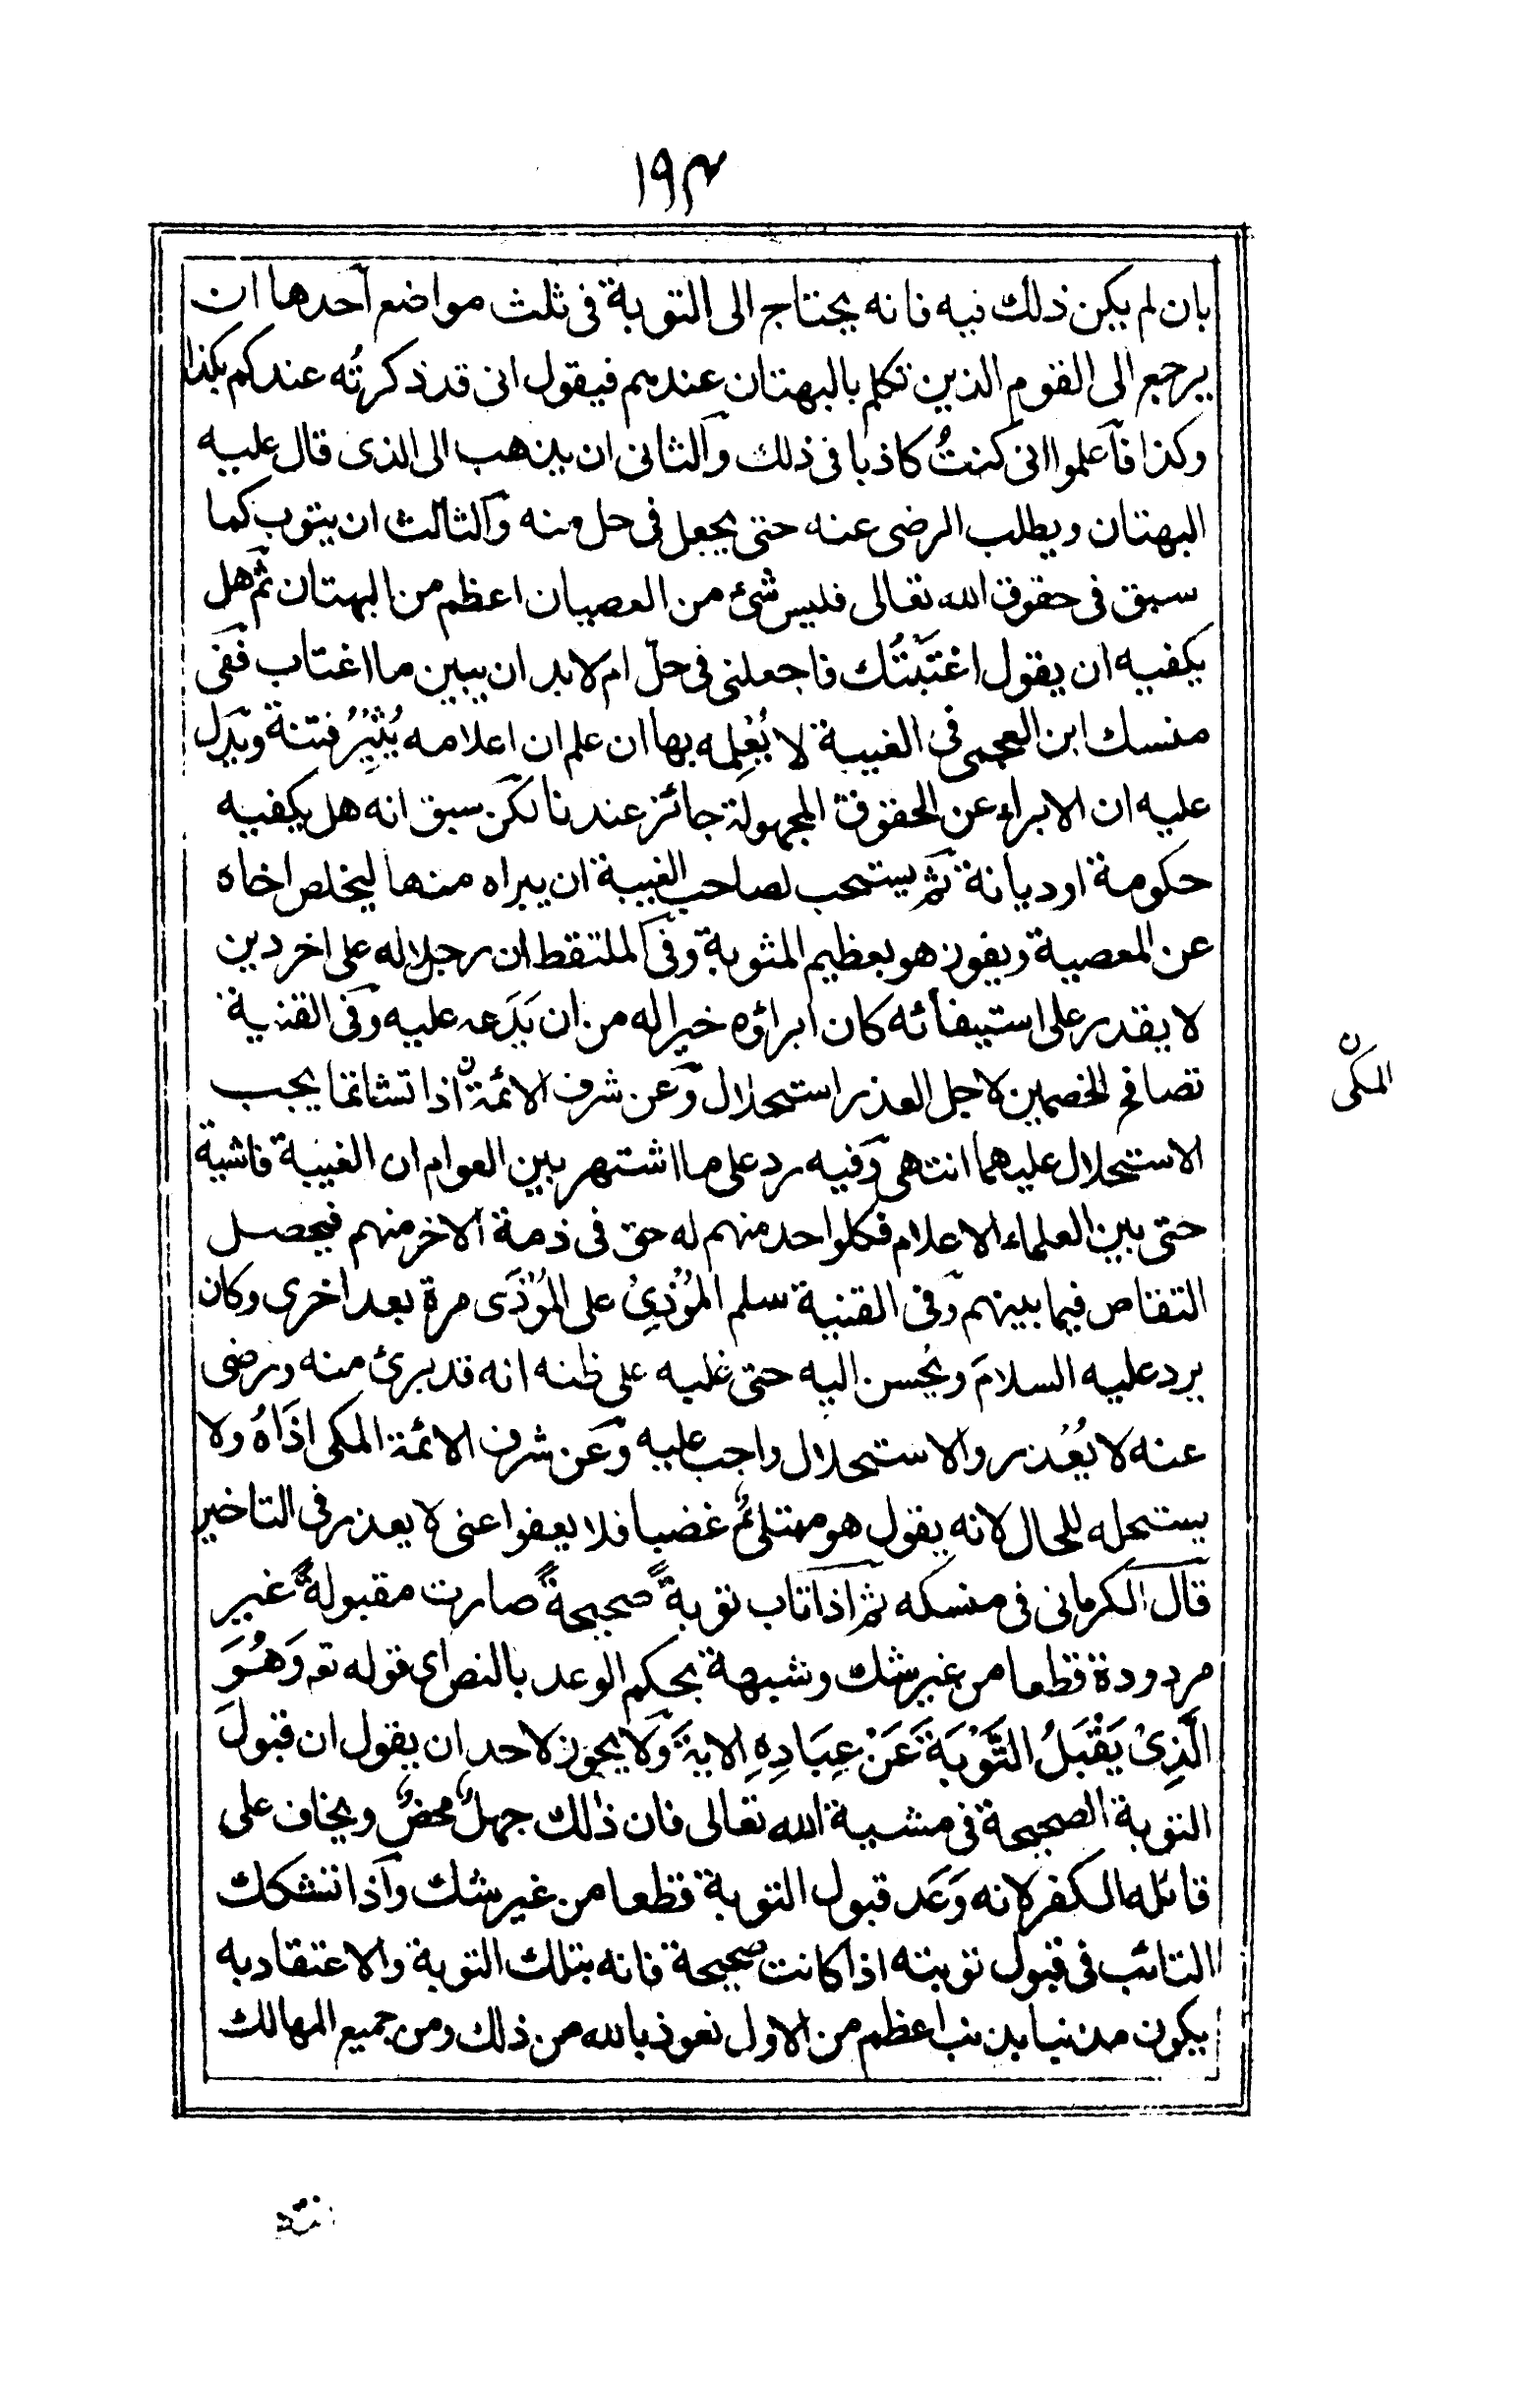 ١٩٣
بان لم يكن ذلك فيه فانه يحتاج الى التوبة فى ثلث مواضع آحدها ان
يرجع الى القوم الذين تكلم بالبهتان عندهم فيقول انى قد ذكرتُه عندكم بكذا
وكذا فآعلموا انى كنتُ كاذبا فى ذلك وآلثانى ان يذهب الى الذى قال عليه
البهتان ويطلب الرضى عنه حتى يجعل فى حل منه وآلثالث ان يتوب كما
سبق فى حقوق الله تعالى فليس شئ من العصيان اعظم من البهتان ثم هل
يكفيه ان يقول اغْتَبْتُك فاجعلنى فى حلّ ام لابد ان يبين ما اغتاب ففى
منسك ابن العجمى فى الغيبة لا يُعْلِمه بها ان علم ان اعلامه يُثِيْرُ فتنة ويدل
عليه ان الابراء عن الحقوق المجهولة جائز عندنا لكن سبق انه هل يكفيه
حكومة او ديانة ثم يستحب لصاحب الغيبة ان يبراه منها ليخلص اخاه
عن المعصية ويفوز هو بعظيم المثوبة وفى الملتقط ان رجلا له على اخر دين
لا يقدر على استيفائه كان ابراؤه خيرا له من ان يَدَعه عليه وفى القنية
تصافح الخصمين لاجل العذر استحلال وعن شرف الائمةن اذا تشاتما يجب
الاستحلال عليهما انتهى وفيه رد على ما اشتهر بين العوام ان الغيبة فاشية
حتى بين العلماء الاعلام فكلواحد منهم له حق فى ذمة الاخر منهم فيحصل
التقاص فيما بينهم وفى القنية سلم المُؤْذِىْ على المُؤْذَى مرة بعد اخرى وكان
يرد عليه السلامَ ويُحسن اليه حتى غلبه على ظنه انه قد برئ منه ورضى
عنه لا يُعْذر والاستحلال واجب عليه وعن شرف الائمة المكى اذَاهُ ولا
يستحله للحال لانه يقول هو ممتلئٌ غضبا فلا يعفوا عنى لا يعذر فى التاخير
قال الكرمانى فى منسكه ثم اذا تاب توبةً صحيحةً صارت مقبولةً غير
مردودة قطعا من غير شك وشبهة بحكم الوعد بالنص اى قوله تع وَهُوَ
الَّذِىْ يَقْبَلُ التَّوْبَةَ عَنْ عِبَادِهِ الاية ولا يجوز لاحد ان يقول ان قبولَ
التوبة الصحيحة فى مشية الله تعالى فان ذلك جهلٌ محضٌ ويخاف على
قائله الكفر لانه وَعَد قبول التوبة قطعا من غير شك وآذا تشكك
التائب فى قبول توبته اذا كانت صحيحة فانه بتلك التوبة والاعتقاد به
يكون مذنبا بذنب اعظم من الاول نعوذ بالله من ذلك ومن جميع المهالك
ن
المكى